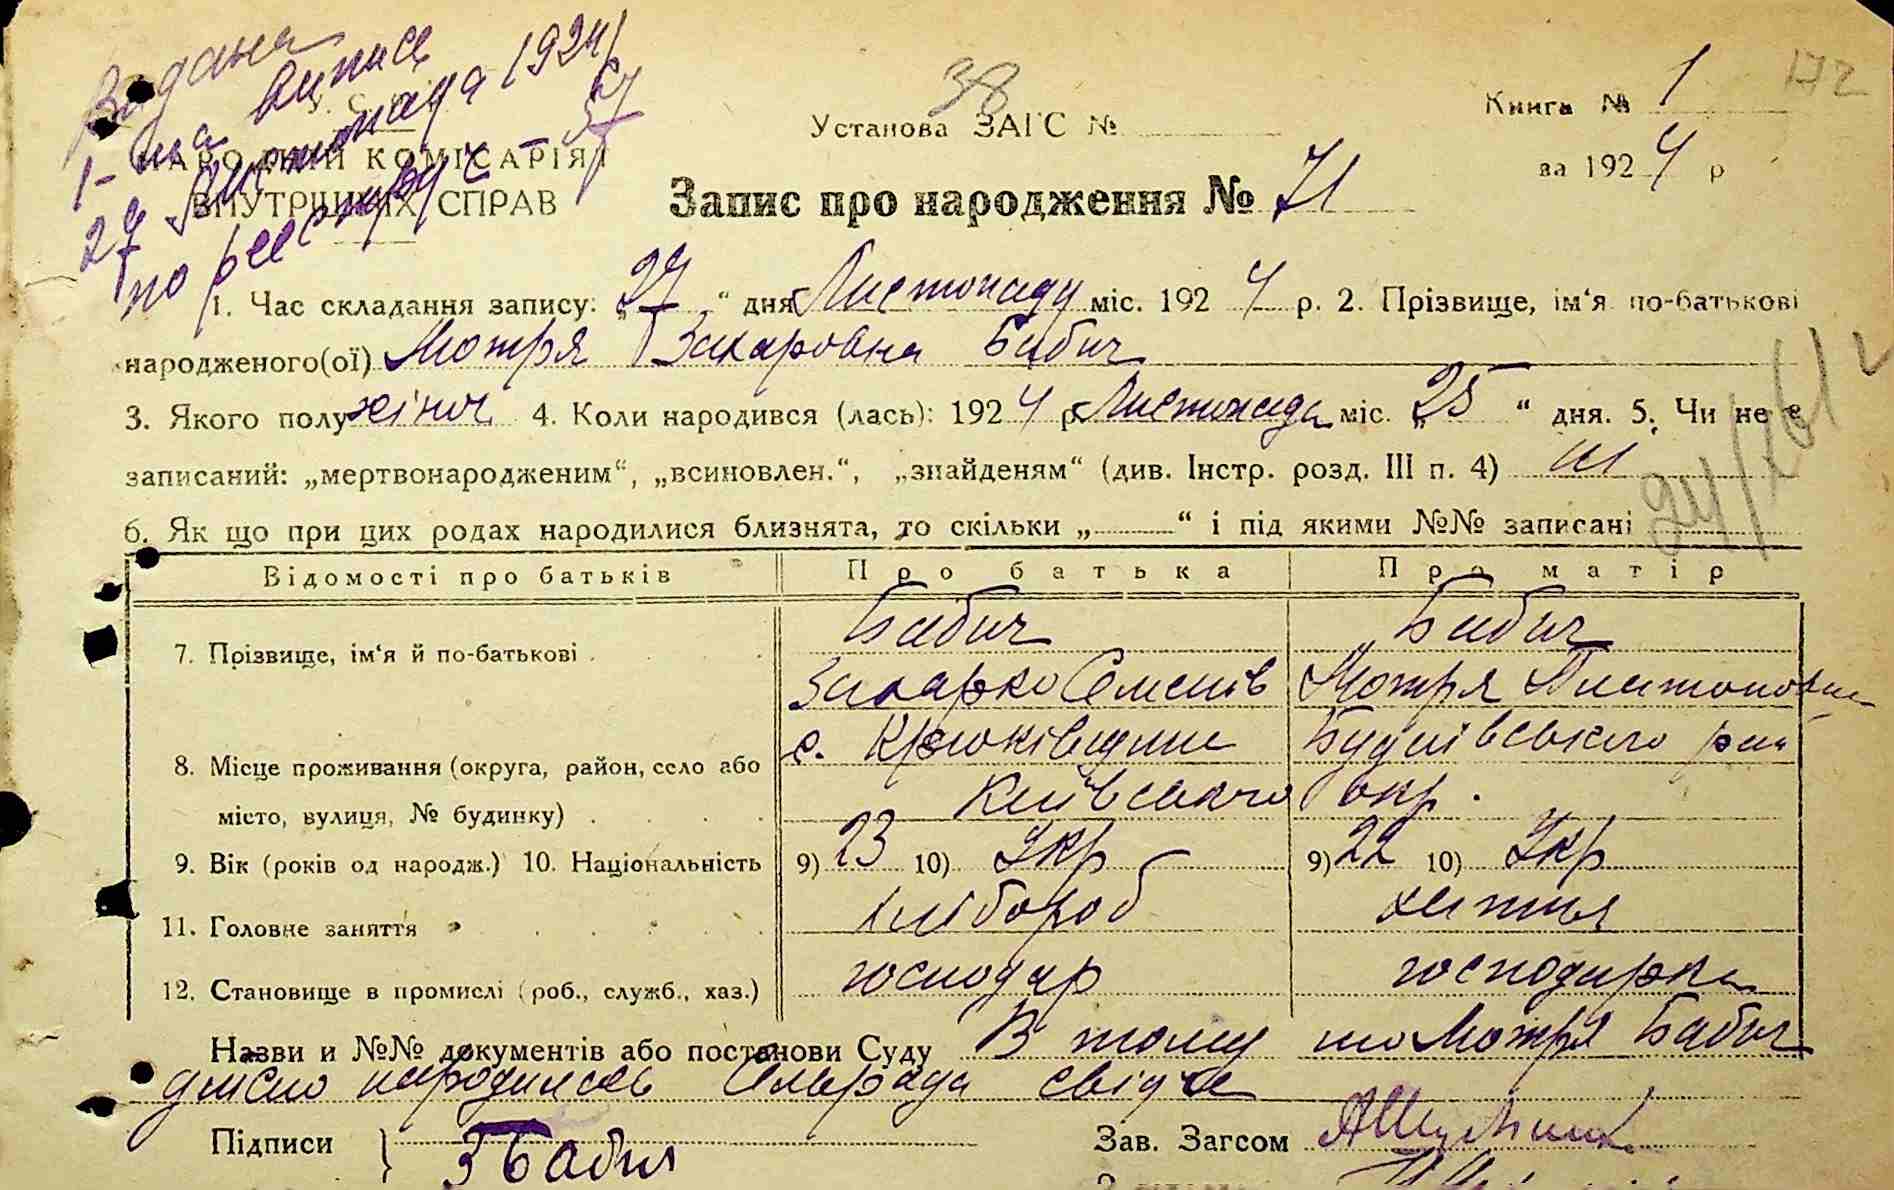 Видана
1-ша випись
27 Листопада 1924
по реєстру № - 57
У. С. Р. Р.
НАРОДНИЙ КОМІСАРІЯТ
ВНУТРІШНІХ СПРАВ
38
Установа ЗАГС №
Книга № 1
172
за 1924 р
Запис про народження № 71
1. Час складання запису: „27“ дня Листопаду міс. 1924 р. 2. Прізвище, ім‘я по-батькові
народженого(ої) Мотря Захаровна Бабич
3. Якого полу жіноч 4. Коли народився (лась): 1924 р Листопада міс. „25“ дня. 5. Чи не є
записаний: „мертвонародженим“, „всиновлен.“, „знайденям“ (див. Інстр. розд. III п. 4) ні
6. Як що при цих родах народилися близнята, то скільки „ “ і під якими №№ записані
Відомості про батьків Про батька Про матір
7. Прізвище, ім‘я й по-батькові . Бабич Бабич
Захарко Семенів Мотря Платоновна
8. Місце проживання (округа, район, село або с. Крюківщина Будаївського рай
місто, вулиця, № будинку) . Київського окр.
9. Вік (років од народж.) 10. Національність 9) 23 10) Укр 9) 22 10) Укр
11. Головне заняття хлібороб хатня
12. Становище в промислі (роб., служб., хаз.) господар господарка
Назви и №№ документів або постанови Суду В тому що Мотря Бабич
дійсно народилась Сельрада свідче
Підписи } З Бабич Зав. Загсом